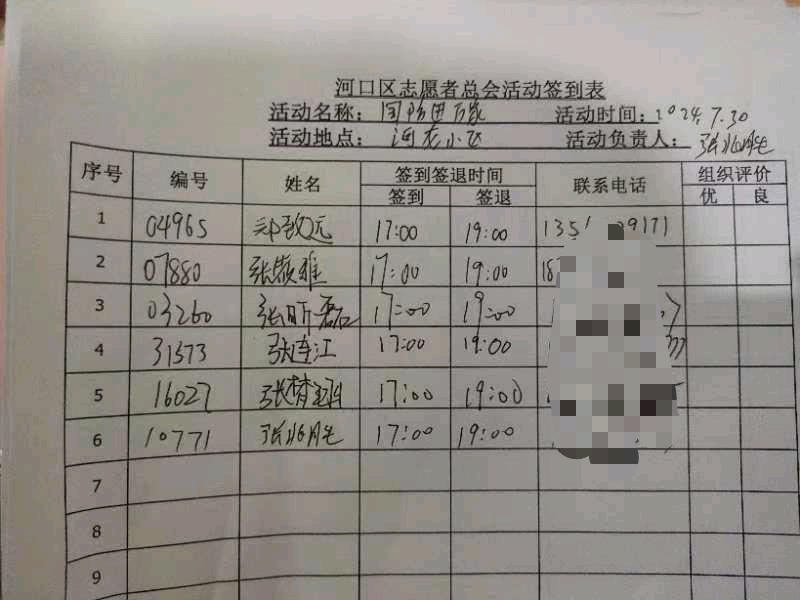 河口区志愿者总会活动签到表
活动名称： 国防进万家 活动时间：2024.7.30
活动地点： 河 小区 活动负责人： 张兆胜
序号 编号 姓名 签到签退时间 联系电话 组织评价
签到 签退 优 良
1 04965 郑致远 17:00 19:00
2 07880 张敬雅 17:00 19:00
3 03260 张昕磊 17:00 19:00
4 31573 张连江 17:00 19:00
5 16027 张梦 17:00 19:00
6 10771 张兆胜 17:00 19:00
7
8
9